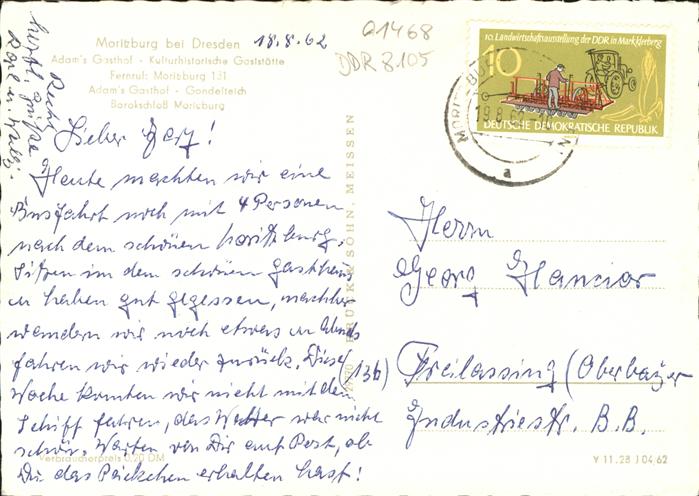 Moritzburg bei Dresden
18.8.62
Adam's Gasthof - Kulturhistorische Gaststätte
Fernruf: Moritzburg 131
Adam's Gasthof - Gondelteich
Barockschloß Moritzburg
Q1468
DDR 8.105
10. Landwirtschaftsausstellung der DDR in Markkleeberg
10
DEUTSCHE DEMOKRATISCHE REPUBLIK
19.8.62
a
Recht
herzl. Grüße
Lieber Georg!
Heute machten wir eine
Busfahrt noch mit 4 Personen
nach dem schönen Moritzburg.
Sitzen in dem schönen Gasthaus
u haben gut gegessen, nachher
wandern wir noch etwas u Abends
fahren wir wieder zurück. Diese
Woche konnten wir nicht mit dem
Schiff fahren, das Wetter war nicht
schön. Warten von Dir auf Post, ob
Du das Päckchen erhalten hast!
BRÜCK & SOHN, MEISSEN
Herrn
Georg Hancior
(13b) Freilassing (Oberbayer
Industriestr. B.B.
Verbraucherpreis 0,20 DM
V 11.28 J 04/62